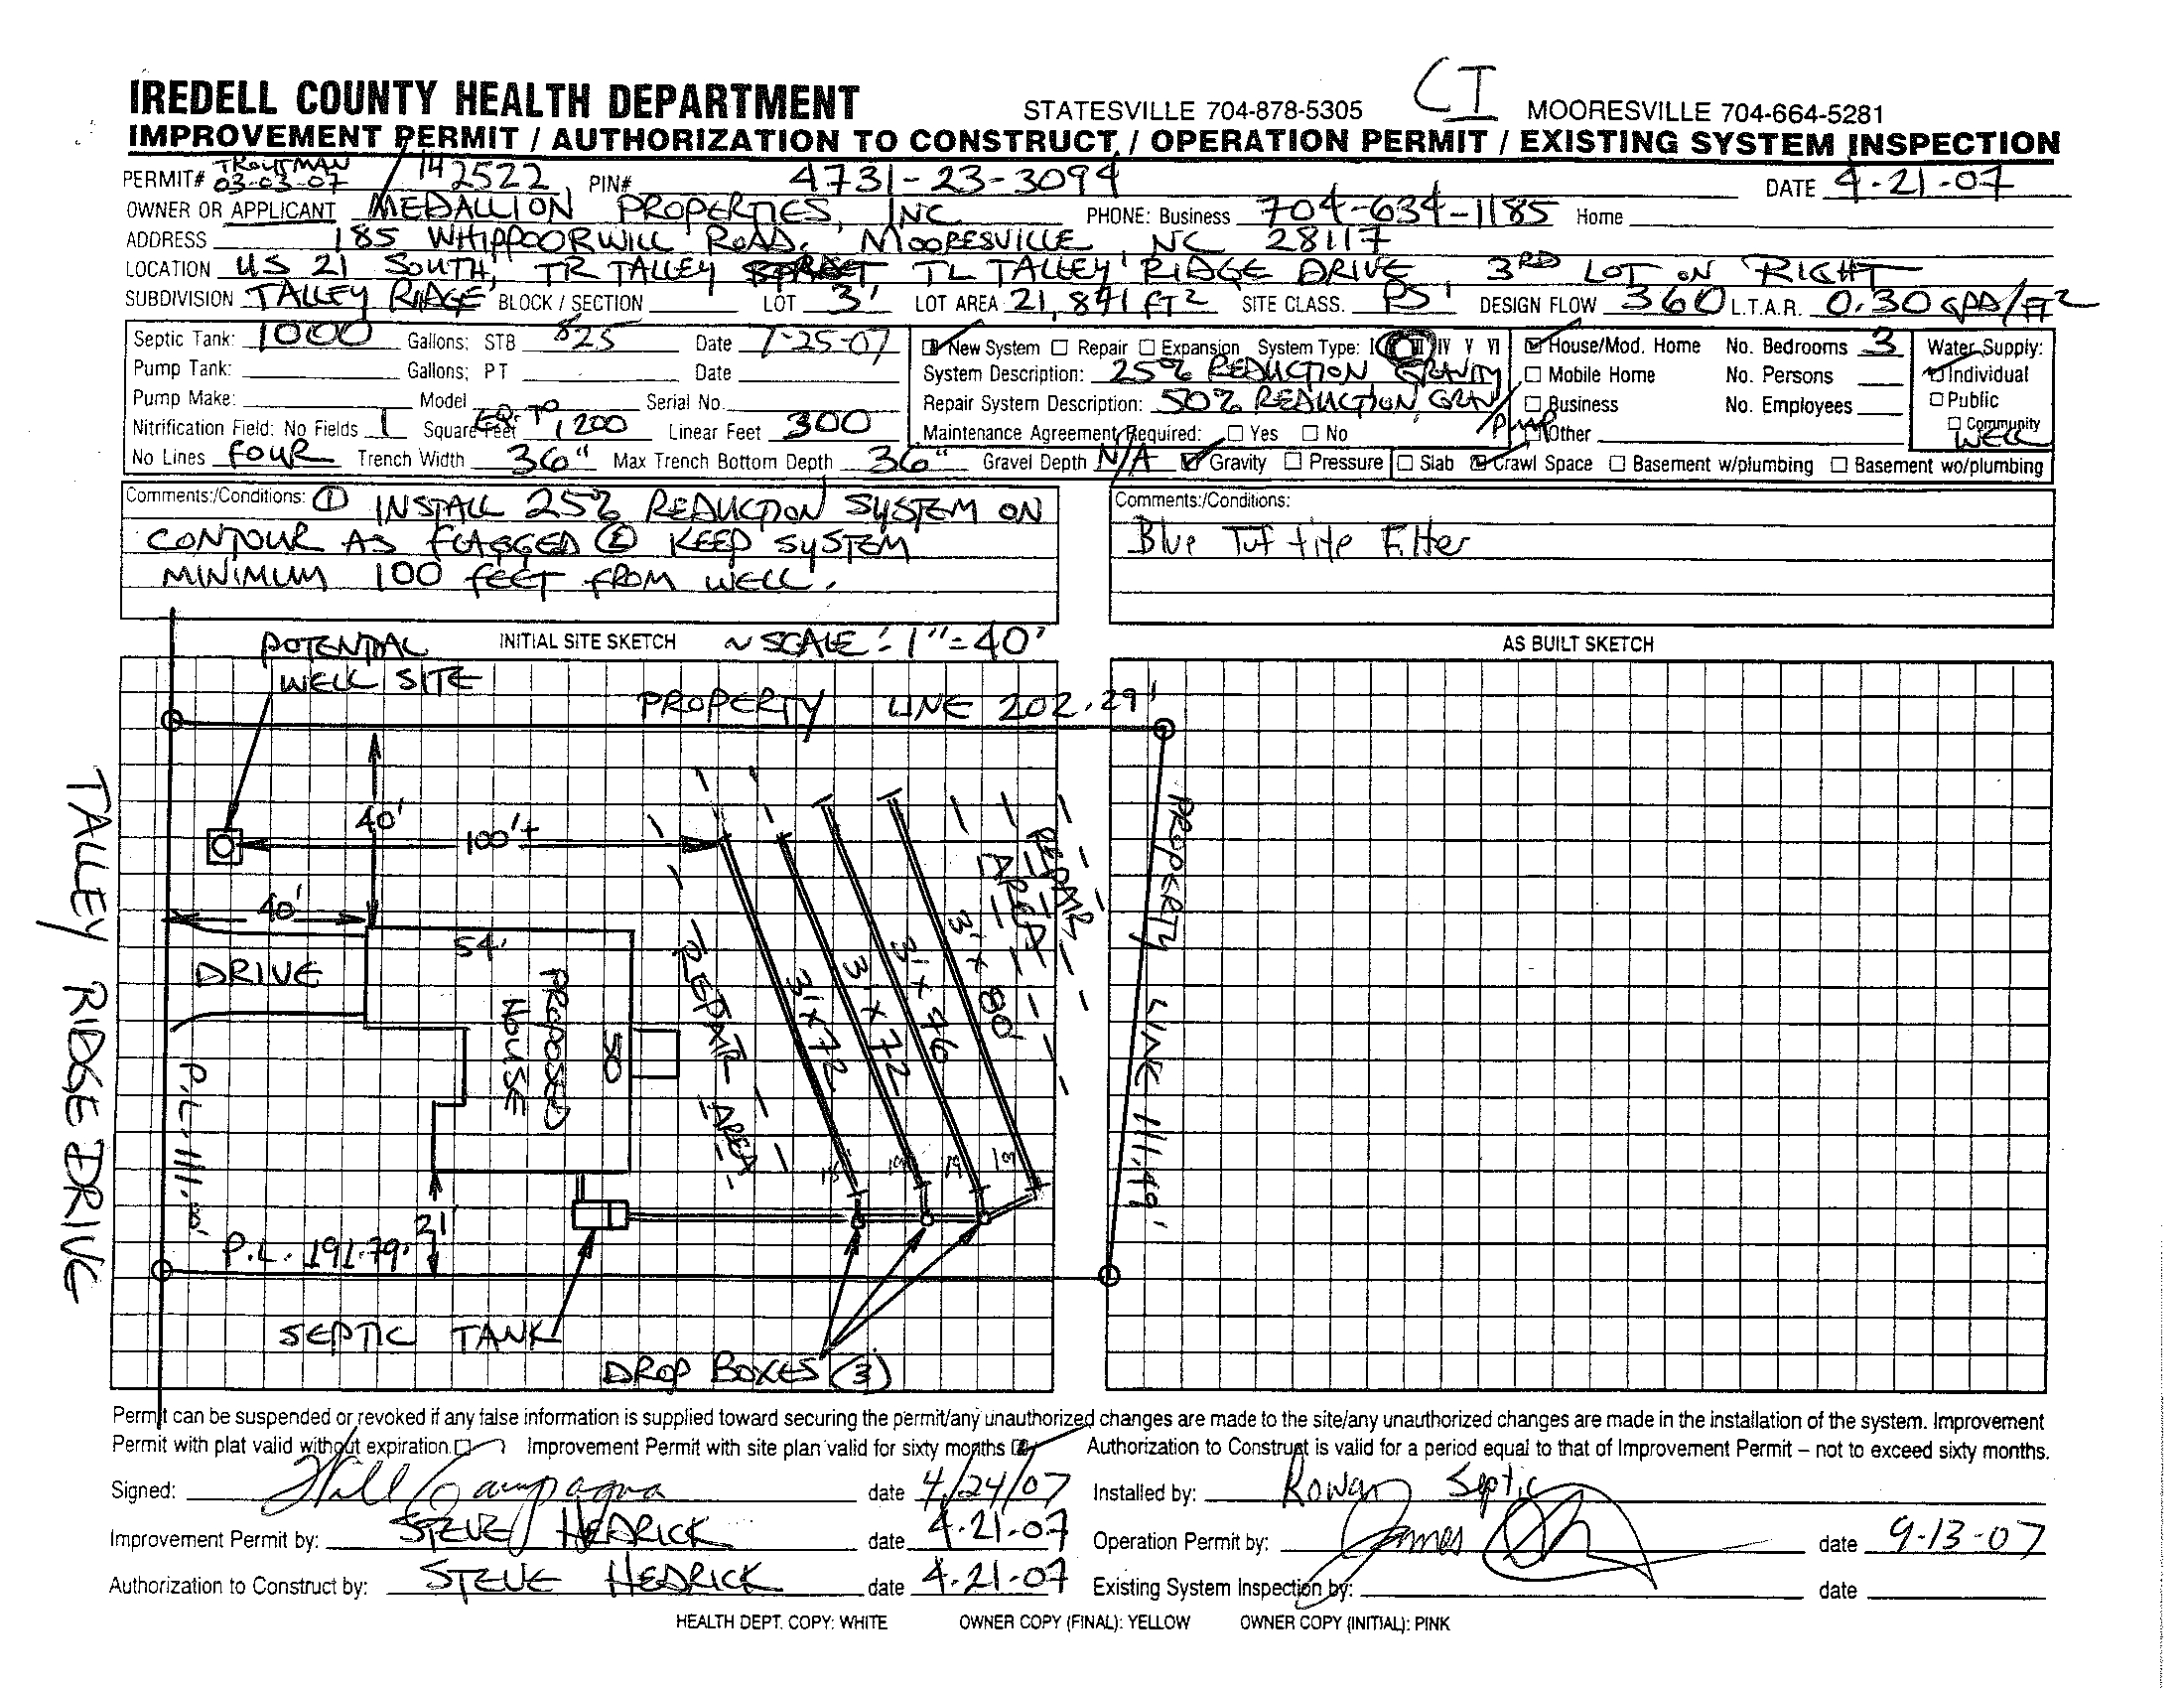 CI
IREDELL COUNTY HEALTH DEPARTMENT STATESVILLE 704-878-5305 MOORESVILLE 704-664-5281
IMPROVEMENT PERMIT / AUTHORIZATION TO CONSTRUCT / OPERATION PERMIT / EXISTING SYSTEM INSPECTION
TROUTMAN
PERMIT# 03-03-07 142522 PIN# 4731-23-3094 DATE 4-21-07
OWNER OR APPLICANT MEDALLION PROPERTIES, INC PHONE: Business 704-634-1185 Home
ADDRESS 185 WHIPPOORWILL ROAD, MOORESVILLE, NC 28117
LOCATION US 21 SOUTH, TR TALLEY TL TALLEY RIDGE DRIVE, 3RD LOT ON RIGHT
SUBDIVISION TALLEY RIDGE BLOCK / SECTION LOT 3 LOT AREA 21,841 FT2 SITE CLASS. PS DESIGN FLOW 360 L.T.A.R. 0.30 GPD/FT2
Septic Tank: 1000 Gallons; STB 825 Date 7-25-07
Pump Tank: Gallons; PT Date
Pump Make: Model Serial No.
Nitrification Field: No Fields 1 Square Feet EQ. TO 1200 Linear Feet 300
No Lines FOUR Trench Width 36" Max Trench Bottom Depth 36" Gravel Depth N/A Gravity Pressure
New System Repair Expansion System Type: I IV V VI
System Description: 25% REDUCTION GRAVITY
Repair System Description: 50% REDUCTION, GRAV/
PUMP
Maintenance Agreement Required: Yes No
House/Mod. Home No. Bedrooms 3
Mobile Home No. Persons
Business No. Employees
Other
Slab Crawl Space Basement w/plumbing Basement wo/plumbing
Water Supply:
Individual
Public
Community
WELL
Comments:/Conditions: ① INSTALL 25% REDUCTION SYSTEM ON
CONTOUR AS FLAGGED ② KEEP SYSTEM
MINIMUM 100 FEET FROM WELL.
Comments:/Conditions:
Blue Tuf tite Filter
INITIAL SITE SKETCH ~ SCALE: 1" = 40'
AS BUILT SKETCH
POTENTIAL
WELL SITE
PROPERTY LINE 202.29'
40'
100'+
40'
54'
DRIVE
PROPOSED
HOUSE
50
REPAIR AREA
3'x72
3'x72
3'x76
3'x80'
REPAIR
AREA
PROPERTY LINE 111.49'
TALLEY RIDGE DRIVE
P.L. 191.79'
21'
SEPTIC TANK
DROP BOXES (3)
Permit can be suspended or revoked if any false information is supplied toward securing the permit/any unauthorized changes are made to the site/any unauthorized changes are made in the installation of the system. Improvement
Permit with plat valid without expiration. Improvement Permit with site plan valid for sixty months Authorization to Construct is valid for a period equal to that of Improvement Permit – not to exceed sixty months.
Signed: date 4/24/07 Installed by: Rowan Septic
Improvement Permit by: STEVE HEDRICK date 4-21-07 Operation Permit by: James date 9-13-07
Authorization to Construct by: STEVE HEDRICK date 4-21-07 Existing System Inspection by: date
HEALTH DEPT. COPY: WHITE OWNER COPY (FINAL): YELLOW OWNER COPY (INITIAL): PINK